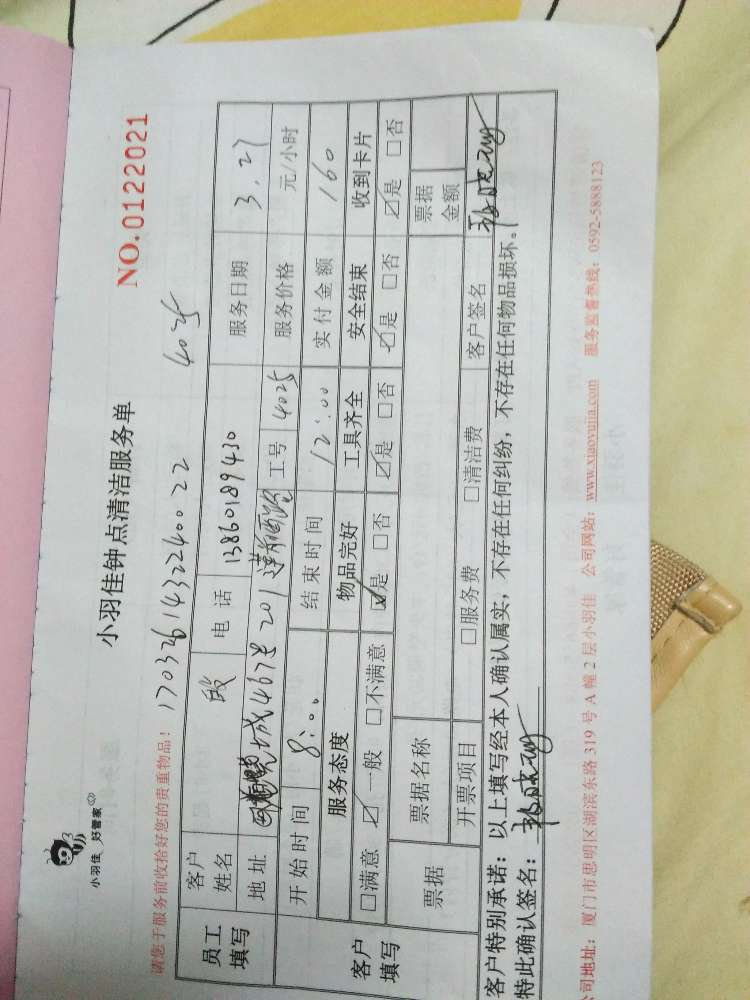 小羽佳 好管家
小羽佳钟点清洁服务单
NO.0122021
请您于服务前收拾好您的贵重物品! 1703261432240022 4025
员工填写 客户姓名 段 电话 13860189430 服务日期 3.27
地址 城467号201莲前西路 工号 4025 服务价格 元/小时
客户填写 开始时间 8:00 结束时间 12:00 实付金额 160
服务态度 物品完好 工具齐全 安全结束 收到卡片
□满意 ☑一般 □不满意 ☑是 □否 ☑是 □否 ☑是 □否 ☑是 □否
票据 票据名称 票据金额
开票项目 □服务费 □清洁费 客户签名
客户特别承诺:以上填写经本人确认属实,不存在任何纠纷,不存在任何物品损坏。
特此确认签名:
公司地址:厦门市思明区湖滨东路 319 号 A 幢 2 层小羽佳 公司网站:www.xiaoyujia.com 服务监督热线:0592-5888123